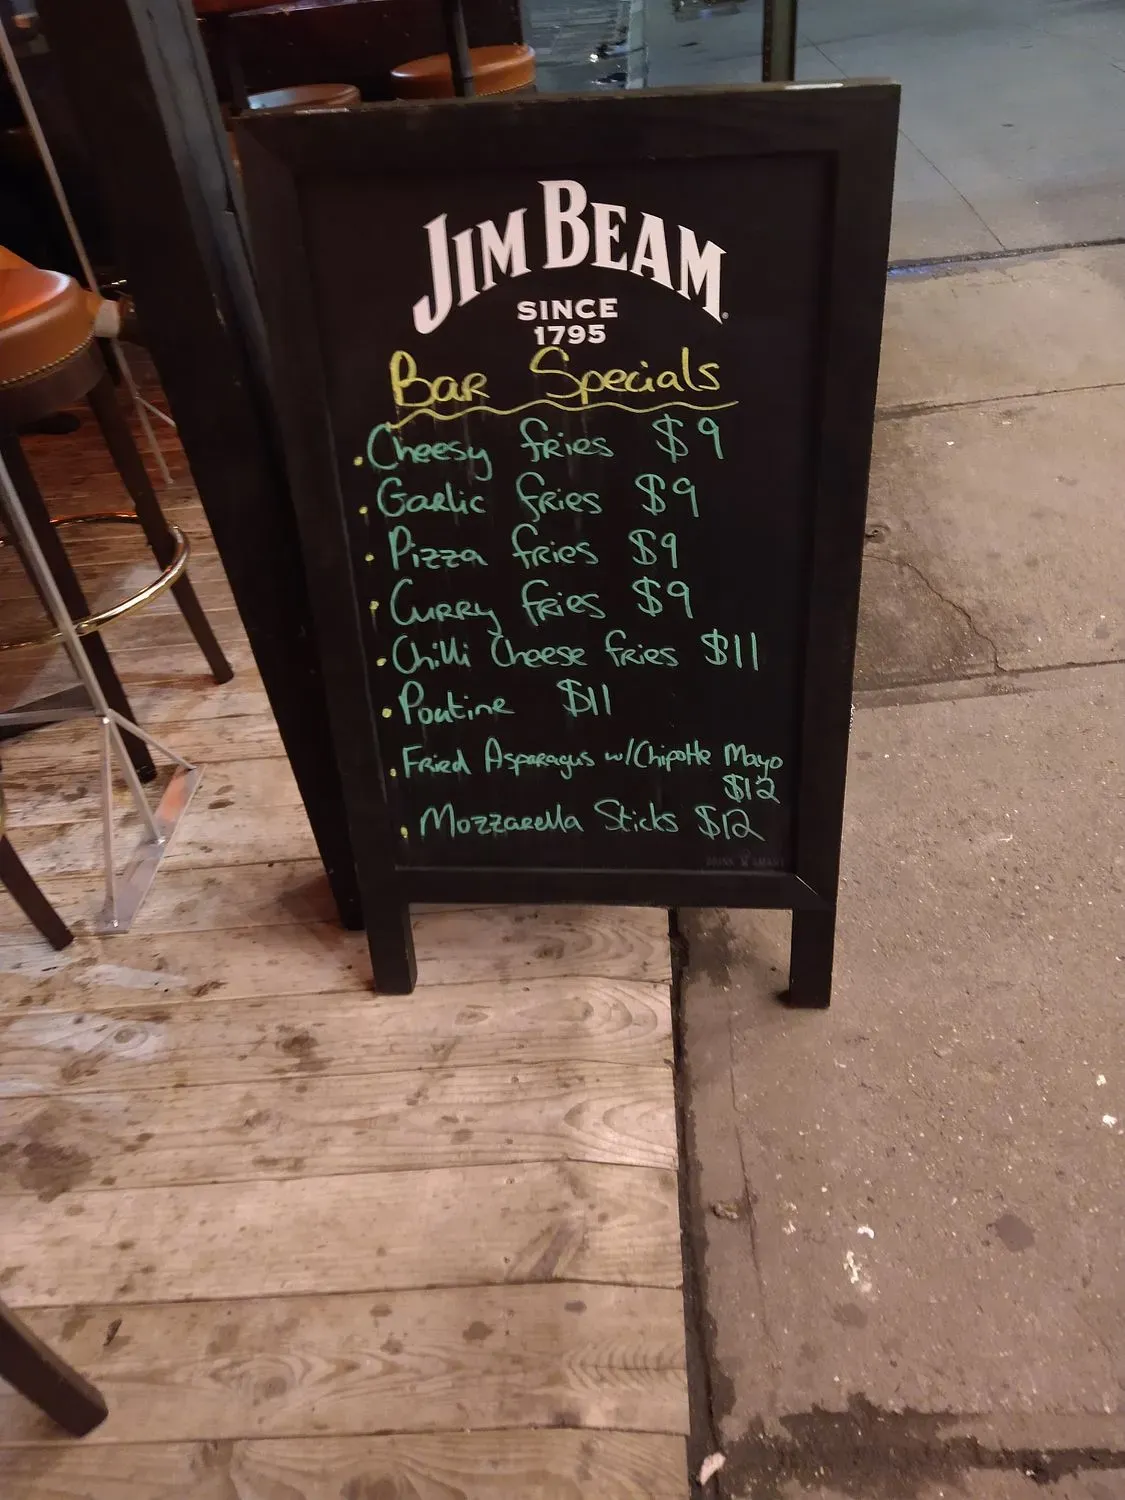 JIM BEAM
SINCE
1795
Bar Specials
• Cheesy fries $9
• Garlic fries $9
• Pizza fries $9
• Curry fries $9
• Chilli Cheese fries $11
• Poutine $11
• Fried Asparagus w/Chipotle Mayo
$12
• Mozzarella Sticks $12
DRINK SMART